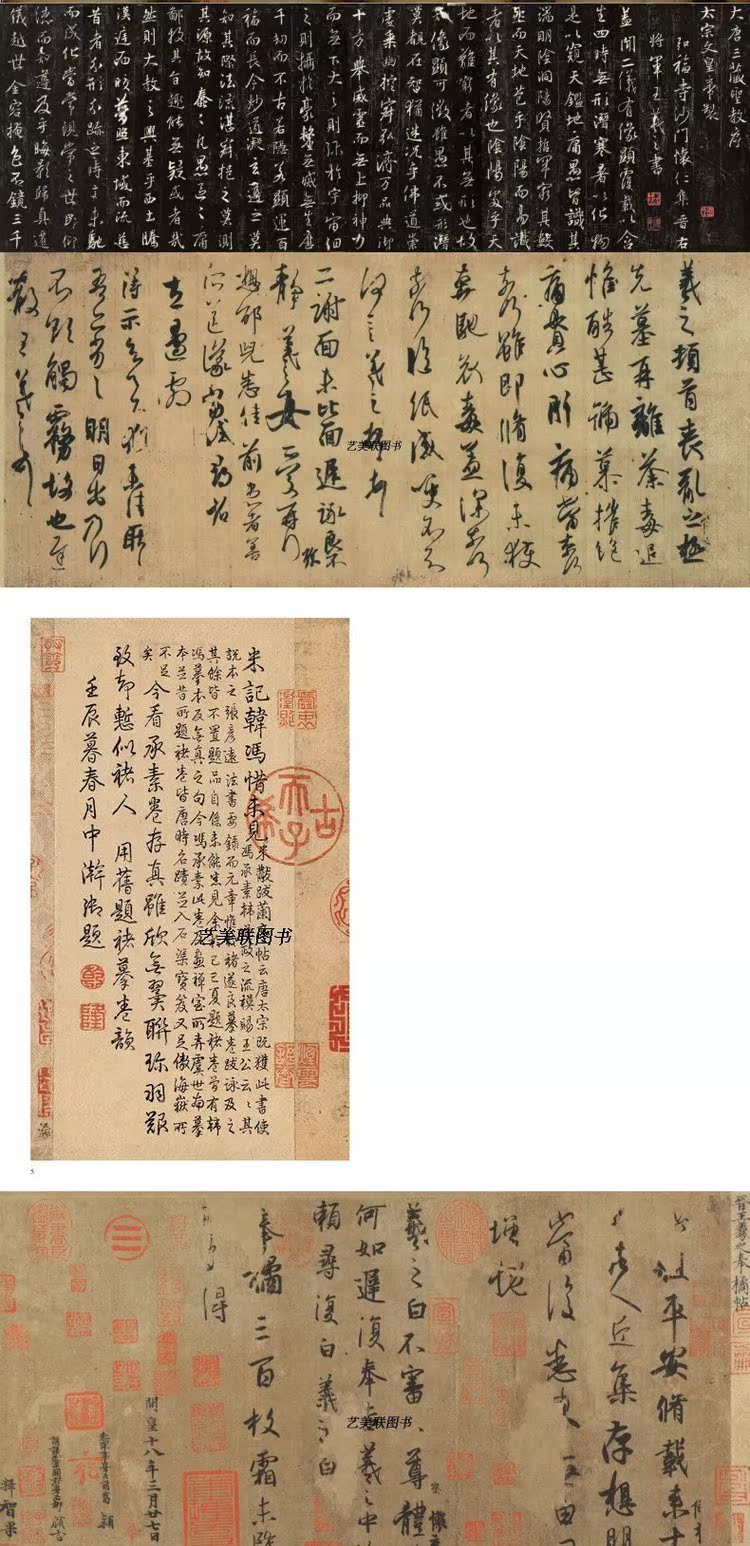 大唐三藏聖教序
太宗文皇帝製
弘福寺沙門懷仁集晉右
將軍王羲之書
蓋聞二儀有像顯覆載以含
生四時無形潛寒暑以化物
是以窺天鑑地庸愚皆識其
端明陰洞陽賢哲罕窮其數
然而天地苞乎陰陽而易識
者以其有像也陰陽處乎天
地而難窮者以其無形也故
知像顯可徵雖愚不惑形潛
莫覩在智猶迷況乎佛道崇
虛乘幽控寂弘濟萬品典御
十方舉威靈而無上抑神力
而無下大之則彌於宇宙細
之則攝於豪釐無滅無生歷
千劫而不古若隱若顯運百
福而長今妙道凝玄遵之莫
知其際法流湛寂挹之莫測
其源故知蠢蠢凡愚區區庸
鄙投其旨趣能無疑或者哉
然則大教之興基乎西土騰
漢庭而皎夢照東域而流慈
昔者分形分跡之時言未馳
而成化當常現常之世民仰
德而知遵及乎晦影歸真遷
儀越世金容掩色不鏡三千
羲之頓首喪亂之極
先墓再離荼毒追
惟酷甚號慕摧絕
痛貫心肝痛當奈何
奈何雖即脩復未獲
奔馳哀毒益深奈何
奈何臨紙感哽不知
何言羲之頓首
二謝面未比面遲詠良
靜羲之女愛再拜
想邵兒悉佳前患者善
所送議當試尋省
左邊劇
得示知足下猶未佳耿
吾亦劣劣明日出乃行
不欲觸霧故也遲
散王羲之
艺美联图书
米記韓馮惜未見
米黻跋蘭亭帖云唐太宗既獲此書使
馮承素韓道政之流模賜王公云云其
說本之張彥遠法書要錄而元章惟褚遂良摹卷跋詠及之
其餘皆不置題品自係未能悉見余
馮摹本及無真之句今馮承素此卷
本並昔所題褚卷皆唐時名蹟並入石渠寶笈又足傲海嶽所
不足
矣
今看承素卷存真雖欣無翼聯珍羽艱
致却慙似褚人
用舊題褚摹卷韻
壬辰暮春月中澣御題
艺美联图书
5
晉王羲之奉橘帖
平安脩載來十
人近集存想明
當復悉
增慨
羲之白不審尊體
何如遲復奉告羲之中
賴尋復白羲之白
奉橘三百枚霜未降
得
開皇十八年三月廿七日
釋智果
艺美联图书